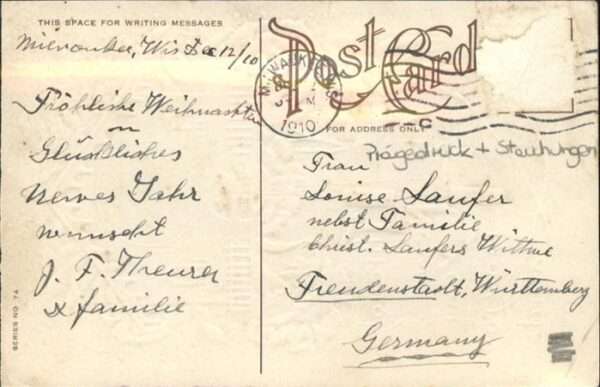 THIS SPACE FOR WRITING MESSAGES
Milwaukee, Wis Dec 12/10
Fröhliche Weihnachten
Glückliches
Neues Jahr
wünscht
J. F. Theurer
& familie
SERIES NO. 74
Post Card
MILWAUKEE
1910
FOR ADDRESS ONLY
Prägedruck + Stauchungen
Frau
Louise Laufer
nebst Familie
Christ. Laufers Wittwe
Freudenstadt, Württemberg
Germany